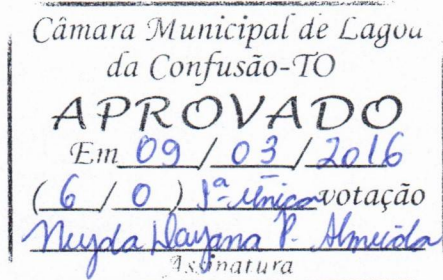 Câmara Municipal de Lagoa
da Confusão-TO
APROVADO
Em 09 / 03 / 2016
( 6 / 0 ) 1ª única votação
Neyda Dayana P. Almeida
Assinatura